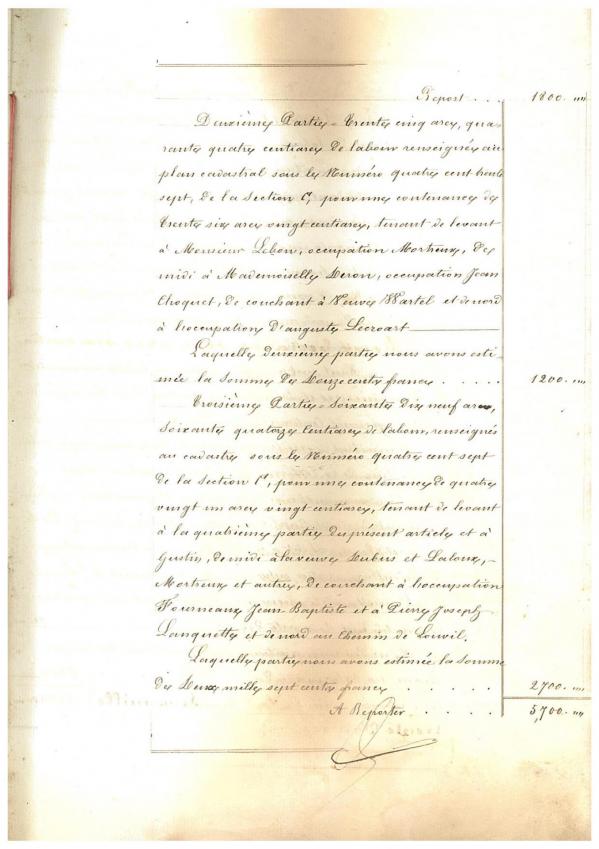 Report . . . 1800. "" 
Deuxième Partie = Trente cinq ares, qua-
rante quatre centiares de labour renseignés au
plan cadastral sous le Numéro quatre cent trente
sept, de la Section C, pour une contenance de
trente six ares vingt centiares, tenant de levant
à Monsieur Lebon, occupation Mortreux, de
midi à Mademoiselle Deron, occupation Jean
Choquet, de couchant à Veuve Wartel et de nord
à l'occupation d'auguste Lecroart
Laquelle deuxième partie nous avons esti-
mée la Somme de Douze cents francs . . . . . 1200. ""
Troisième Partie = Soixante dix neuf ares,
Soixante quatorze Centiares de labour, renseignés
au cadastre sous le Numéro quatre cent sept
de la Section C, pour une contenance de quatre
vingt un ares vingt centiares, tenant de levant
à la quatrième partie du présent article et à
Gustin, de midi à la veuve Dubus et Laloux, -
Mortreux et autres, de couchant à l'occupation
Fourneaux Jean Baptiste et à Pierre Joseph
Lanquette et de nord au Chemin de Louvil.
Laquelle partie nous avons estimée la somme
de Deux mille sept cents francs . . . . . 2700. ""
A Reporter . . . . . 5,700. ""